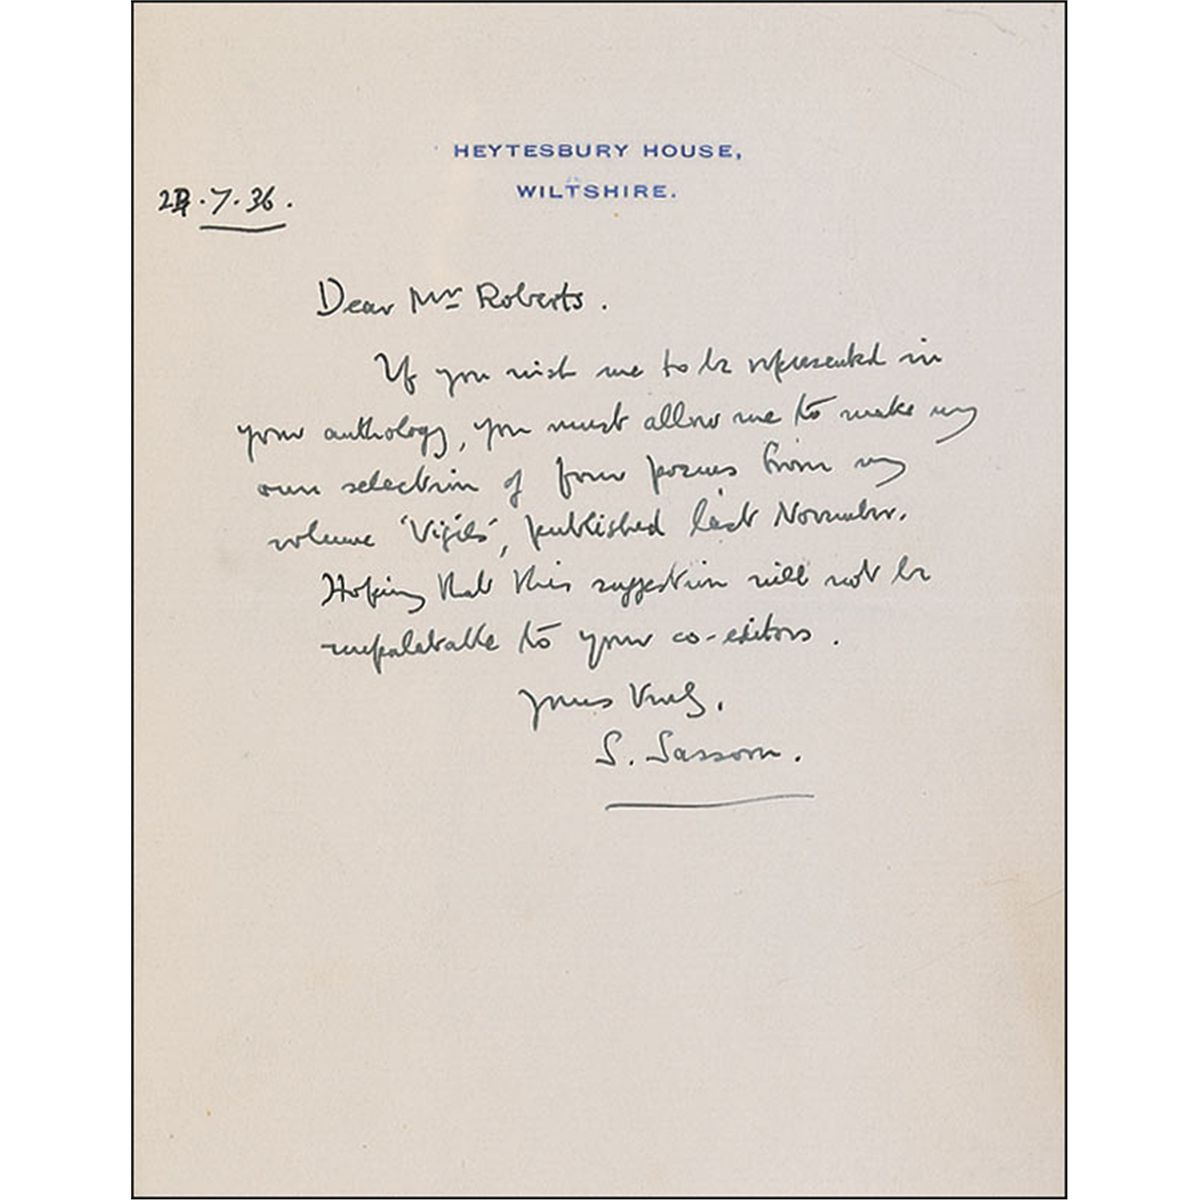 HEYTESBURY HOUSE,
WILTSHIRE.
.7.36.
Dear Mr Roberts.
If you wish me to be represented in
your anthology, you must allow me to make my
own selection of four poems from my
volume 'Vigils', published last November.
Hoping that this suggestion will not be
unpalatable to your co-editors.
Yours Truly.
S. Sassoon.